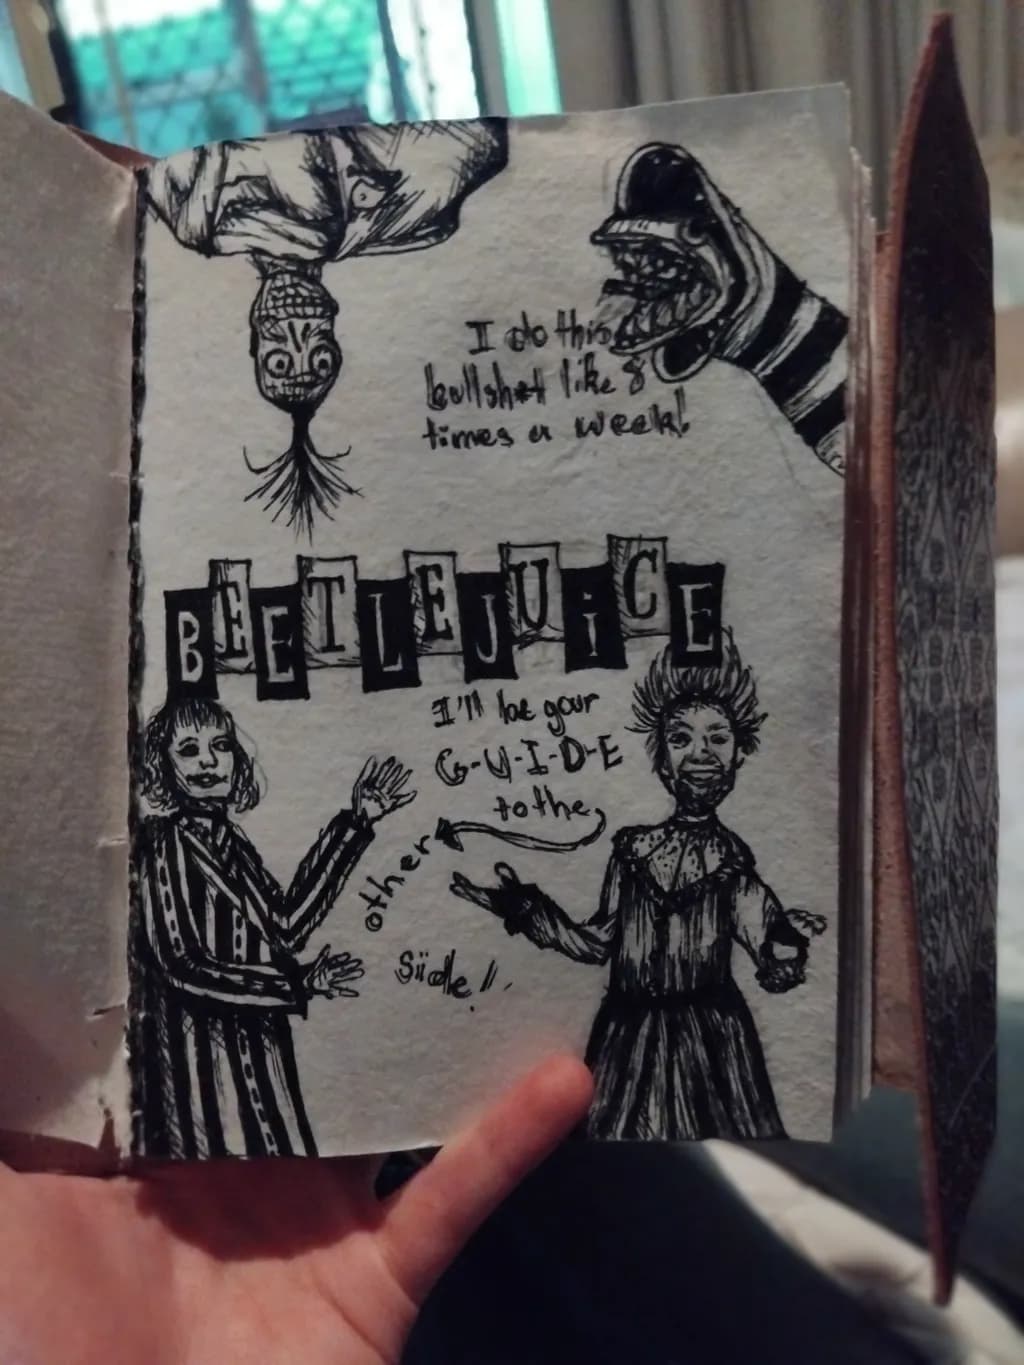 I do this
bullsh*t like 8
times a week!
BEETLEJUiCE
I'll be your
G-U-I-D-E
to the
other
Side!!